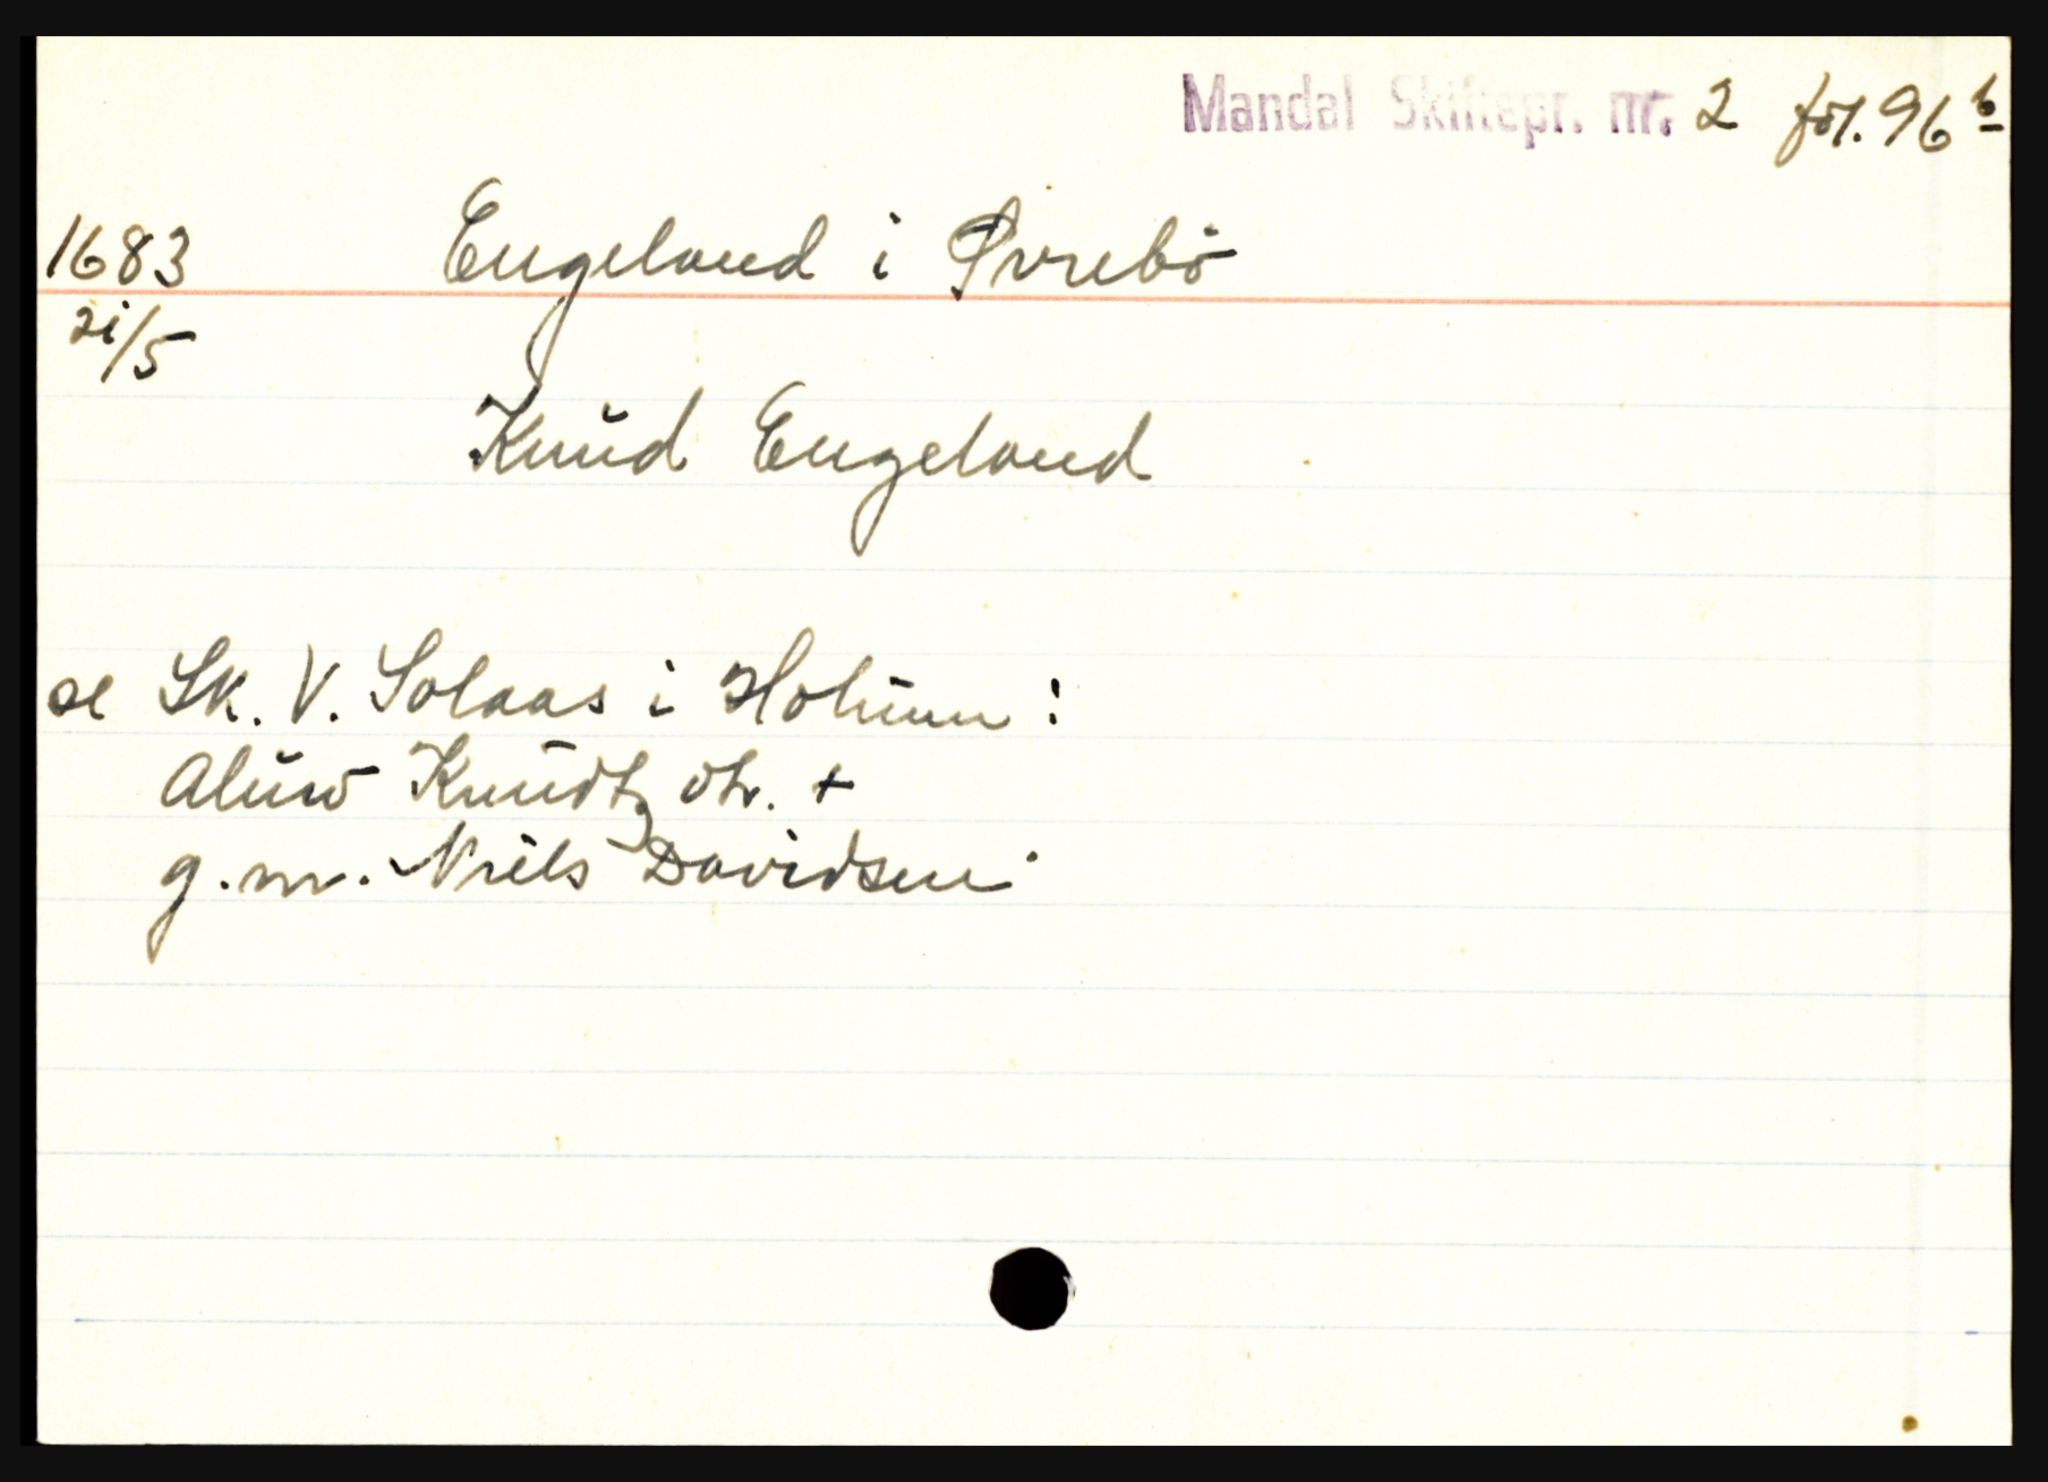 Mandal Skiftepr. nr. 2 fol. 96 b
1683 Engeland i Øvrebö
21/5
Knud Engeland
se Sk. V. Solaas i Holum:
Aluw Knudtz dtr. +
g. m. Niels Davidsen.